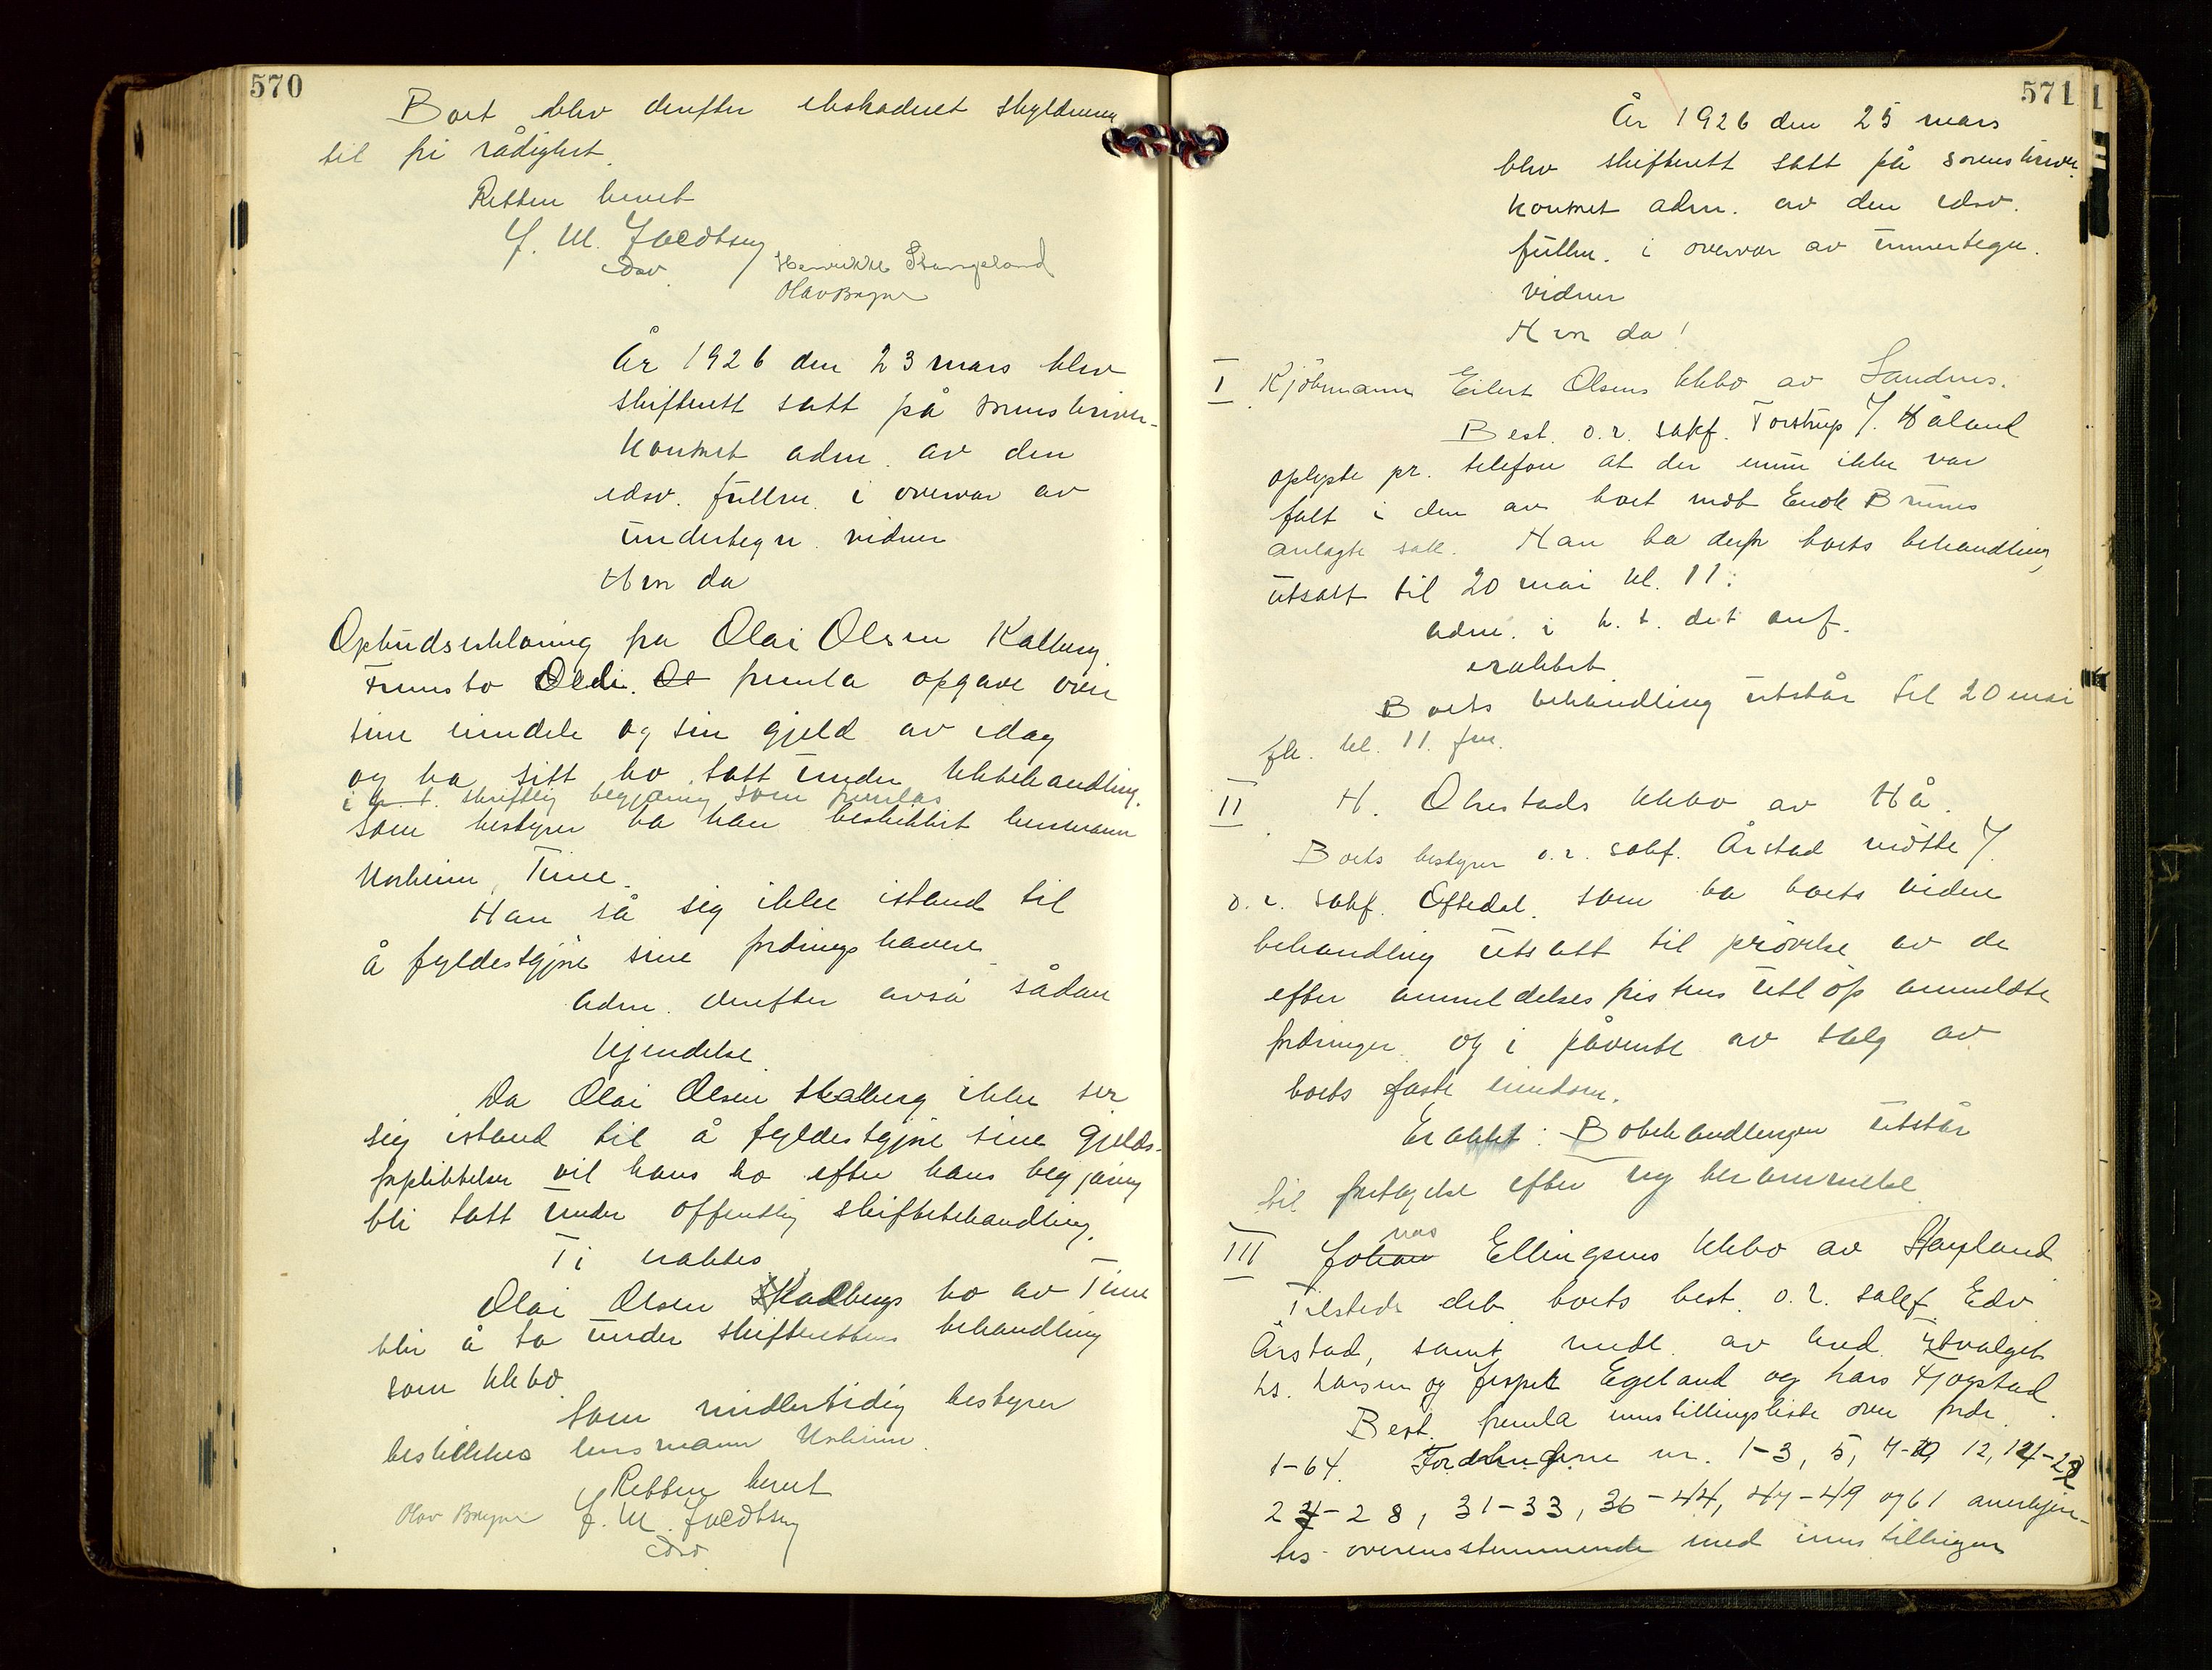 570
Boet blev derefter ekstraderet skyldneren
til fri rådighet.
Retten hevet
J. M. Jacobsen
edsv. Henrikke Stangeland
Olav Bryne
År 1926 den 23 mars blev
skifterett satt på sorenskriver-
kontoret adm. av den
edsv. fullm. i overvær av
undertegn. vidner
Hvor da
Opbudserklæring fra Olai Olsen Kalberg.
Fremsto Olai. Ol fremla opgave over
sine eiendele og sin gjeld av idag
og ba sitt bo tatt under kkbehandling.
i h. t. skriftlig begjæring som fremlas
Som bestyrer ba han beskikket lensmann
Norheim, Time.
Han så sig ikke istand til
å fyldestgjøre sine fordringshavere.
Adm. derefter avsa sådan
kjendelse.
Da Olai Olsen Skalberg ikke ser
sig istand til å fyldestgjøre sine gjelds-
forpliktelser vil hans bo efter hans begjæring
bli tatt under offentlig skiftebehandling.
Ti eraktes
Olai Olsen Kalbergs bo av Time
blir å ta under skifterettens behandling
som kkbo.
Som midlertidig bestyrer
beskikkes lensmann Norheim.
Retten hevet
Olav Bryne J. M. Jacobsen
edsv.
571
År 1926 den 25 mars
blev skifterett satt på sorenskriver-
kontoret adm. av den edsv.
fullm. i overvær av unnertegn.
vidner
Hvor da!
I Kjøbmann Eilert Olsens kkbo av Sandnes.
Best. o.r. sakf. Torstrup v/ Håland
oplyste pr. telefon at der ennu ikke var
falt i den av boet mot Enok Brunes
anlagte sak. Han ba derfor boets behandling
utsatt til 20 mai kl. 11.
Adm. i h. t. det anf.
eraktet
Boets behandling utstår til 20 mai
fk. kl. 11. fm.
II H. Obrestads kkbo av Hå.
Boets bestyrer o.r. sakf. Årstad møtte v/
o.r. sakf. Oftedal som ba boets videre
behandling utsatt til prøvelse av de
efter anmeldelsesfristens utløp anmeldte
fordringer og i påvente av salg av
boets faste eiendom.
Eraktet: Bobehandlingen utstår
til foretagelse efter ny berammelse.
III Johan nas Ellingsens kkbo av Høyland
Tilstede var boets best. o.r. sakf. Edv.
Årstad, samt medl. av kred. utvalget
hs. Larsen og Jesper Egeland og Lars Fjogstad
Best. fremla innstillingsliste over fordr.
1-64. Fordringene nr. 1-3, 5, 7-10 12, 14-22
24-28, 31-33, 36-44, 47-49 og 61 anerkjen-
tes overensstemmende med innstillingen